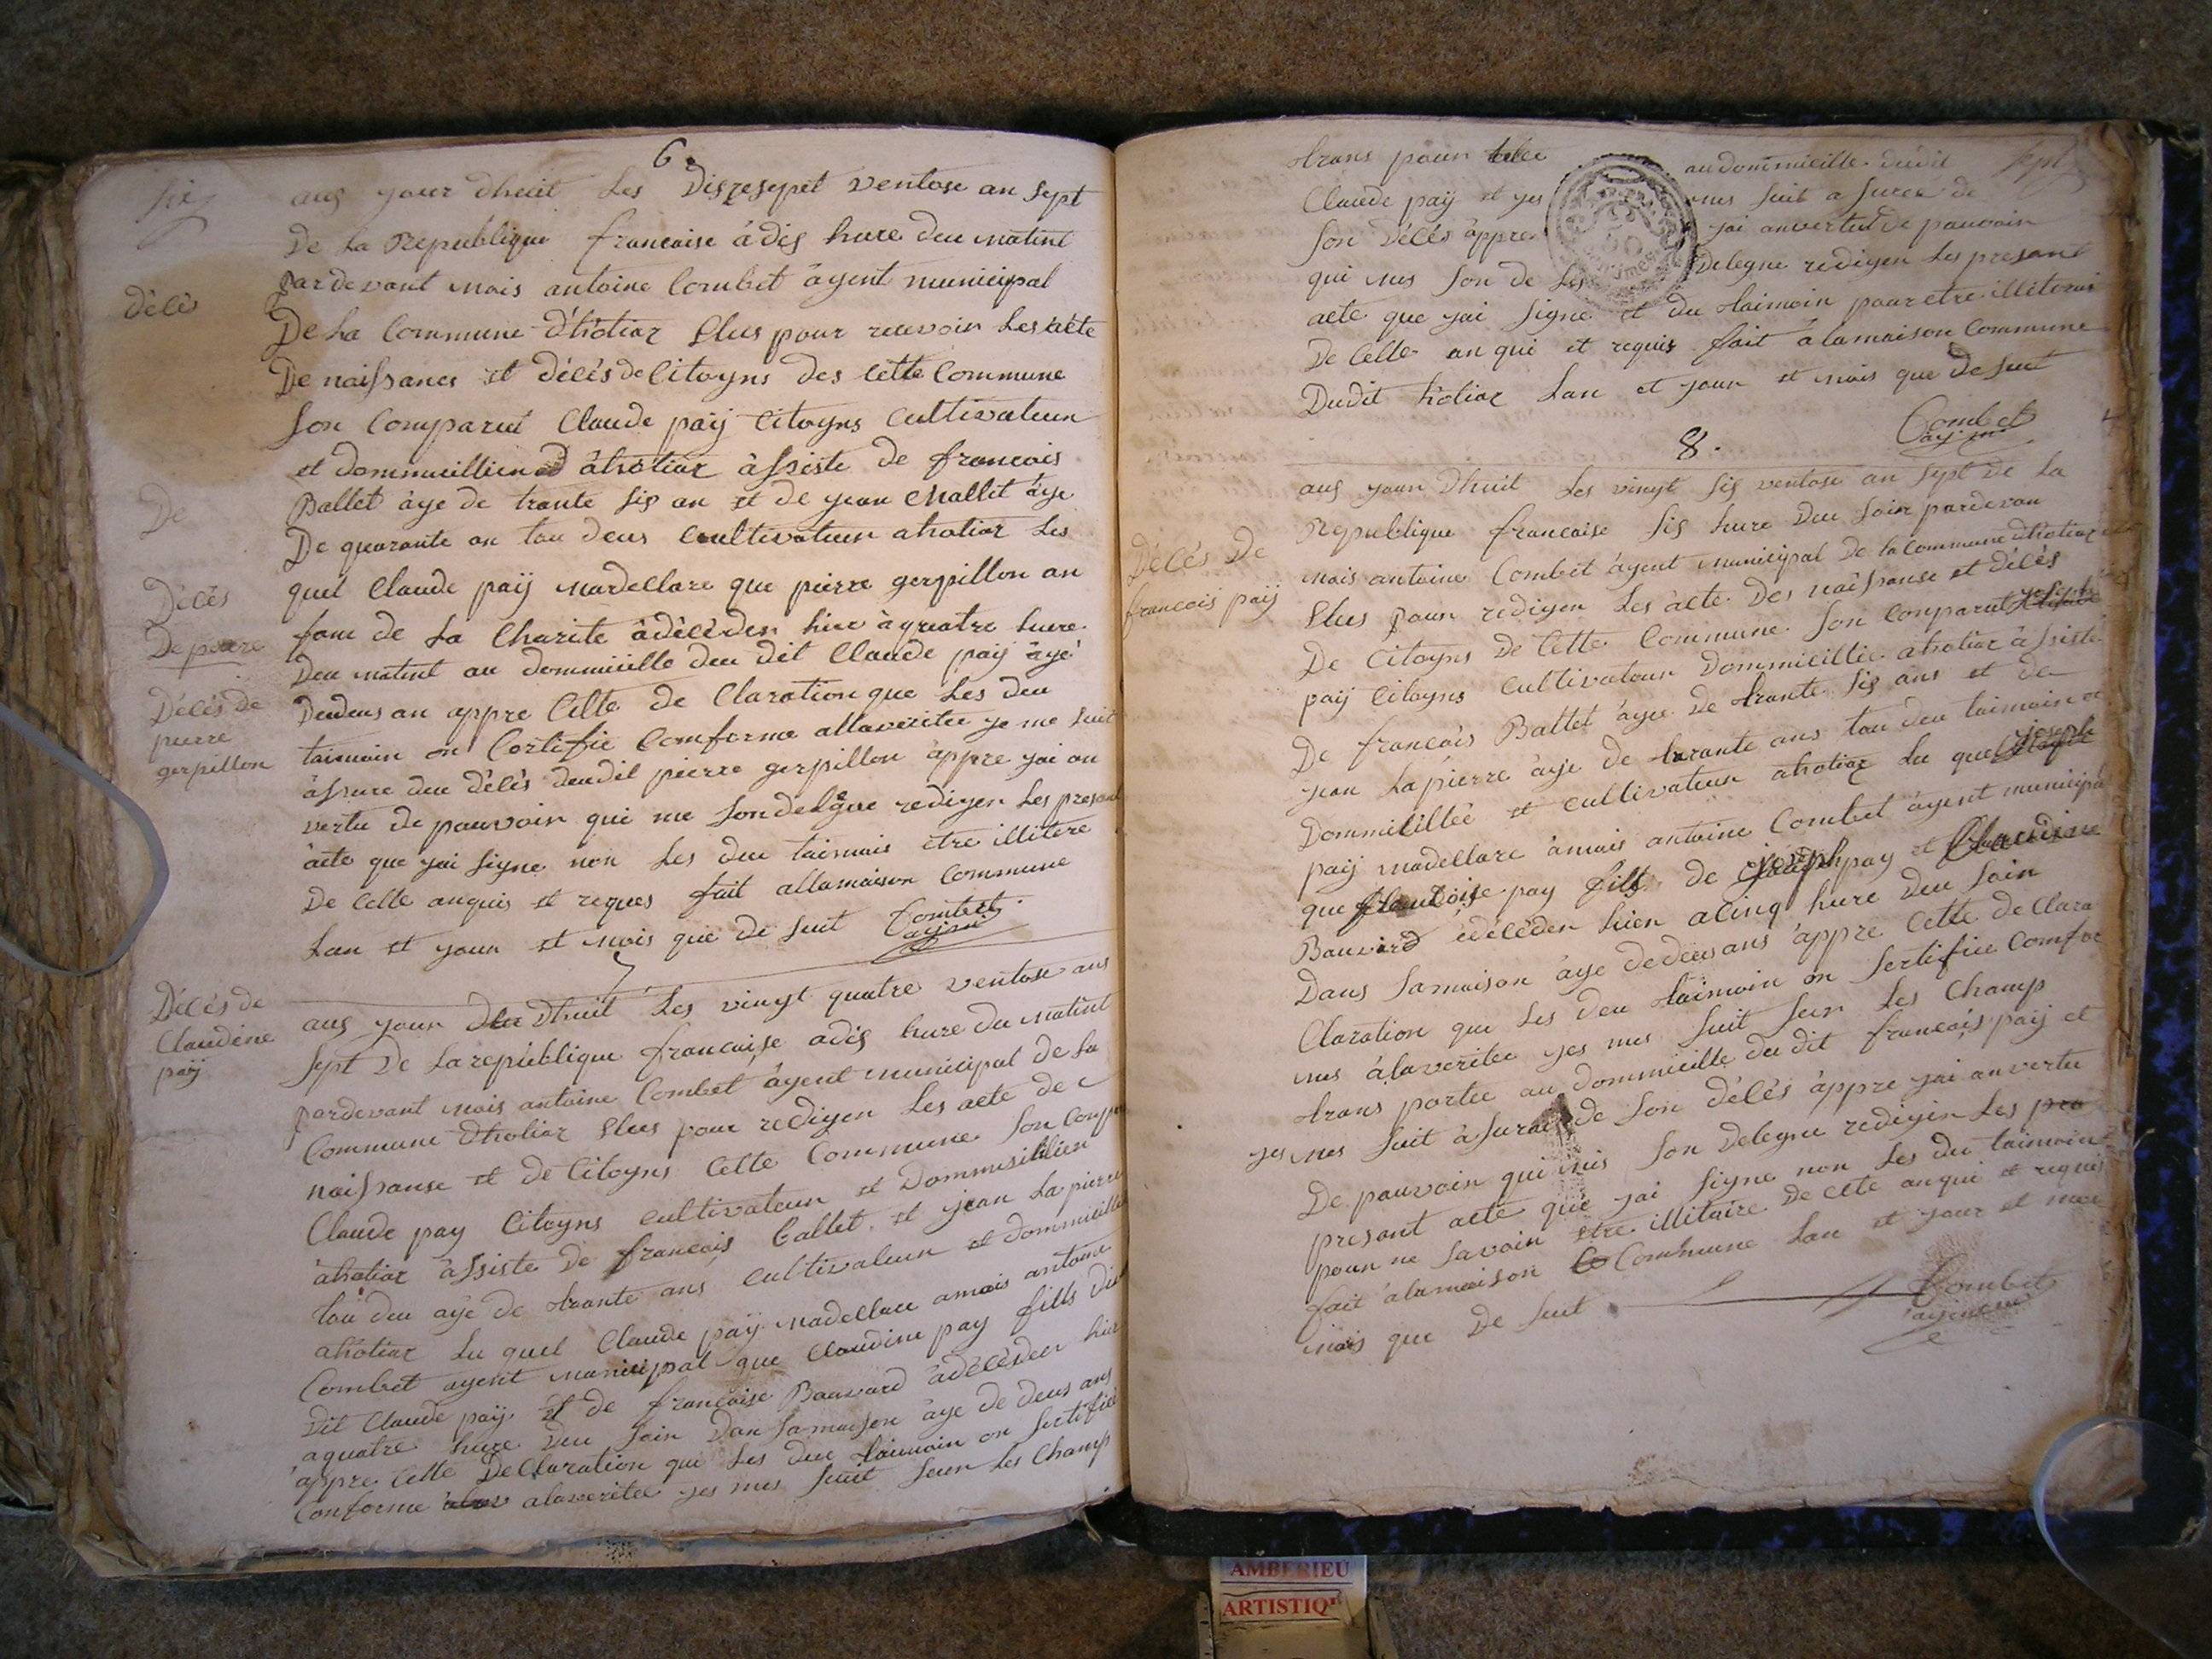 6.
six
aug your dhuit Les Disresepet ventose an Sept
De La Republique francaise à dis hure deu matint
pardevant mois antoine Combet àyent municipal
décè
De La Commune d'hotiar Elus pour recevoir Les acte
De naissances et décés de Citoyns des Cette Commune
Son Comparut Claude paÿ Citoyns Cultivateur
et dommicillien àhotiar àssiste de francois
De
Ballet àye de trante sis an et de yean Mallet àye
De quarante an tou deus Cultivateur ahotiar Les
Décés
quel Claude paÿ mardellare que pierre gerpillon an
De pierre
fam de La Charite àdècèden hier à quatre hure
Deu matint au dommiiille deu dit Claude paÿ àyé
Décés de
pierre
gerpillon
Deudeus an appre Cette de Claration que Les deu
taimoin on Certifie Comforme allaveritee ye me suit
àssure deu décés deudit pierre gerpillon appre yai an
vertu de pouvoir qui me Son delegue rediyer Les presant
àcte que yai Signe non Les deu taimois etre illitere
De Cette anquis et reques fait allamaison Commune
Lan et your et mois que de suit Combet
ayent
7
Décés de
Claudine
paÿ
aug your dhuit Les vinyt quatre ventose ans
Sept De La republique francaise adis hure du matint
pardevant mois antoine Combet àyent municipal de La
Commune dhotiar Elus pour rediyer Les acte de
naissanse et de Citoyns Cette Commune Son Compa
Claude pay Citoyns cultivateur et Dommisillien
ahotiar àssiste De francois Ballet et yean La pierre
tou deu aye de trante ans cultivateur et dommicille
ahotiar Lu quel Claude paÿ madellare amois antoine
Combet ayent municipal que Claudine pay fills du
Dit Claude paÿ et de francoise Bauvard àdècèden hier
aquatre hure deu Soir Dan Samaison àye de deus ans
àppre Cette Declaration qui Les deu taimoin on Sertifie
Conforme alaveritee yes mes suit Seur Les Champ
sept
trans pour tee au dommicille dudit
Claude paÿ et yes mes suit a suree de
Son décés àppre yai anvertu de pouvoir
qui mes Son de Les Delegue rediyer Les presant
acte que yai signe et du taimoin pour etre illiterai
De Cette anqui et requis fait àlamaison Commune
Dudit hotiar Lan et your et mois que de suit
Combet
ayent
8.
aug your Dhuit Les vinyt sis ventose an Sept de La
Republique francaise sis hure deu Soir pardevan
Décés De
francois paÿ
mois antoine Combet àyent municipal De La Commune dhotiar
Elus pour rediyer Les àcte Des naissanse et décés
De Citoyns De Cette Commune Son Conparut yoseph
paÿ Citoyns Cultivateur Dommicillie ahotiar àssiste
De francois Ballet àye De trante sis ans et de
yean Lapierre àye de trante ans tou deu taimoin
Dommicillée et cultivateur ahotiar Lu quel joseph
paÿ madellare àmois antoine Combet àyent municipa
que francoise pay fills de joseph pay et Claudine
Bauvard dècèden hier acinq hure deu Soir
Dans Samaison àye dedeus ans àppre Cette de Clara
Claration que Les deu taimoin on Sertifie Comfor
mes àlaveritee yes mes suit Seur Les Champ
trans portee au dommicille du dit francois paÿ et
yes mes suit àsuree de Son décés àppre yai an vertu
De pouvoir qui mis Son Delegue rediyer Les pre
presant acte que yai Signe non Les deu taimoin
pour ne Savoir etre illitaire De Cete anqui et requis
fait àlamaison Co Commune Lan et your et moi
mois que De suit Combet
ayent
AMBERIEU
ARTISTIQ